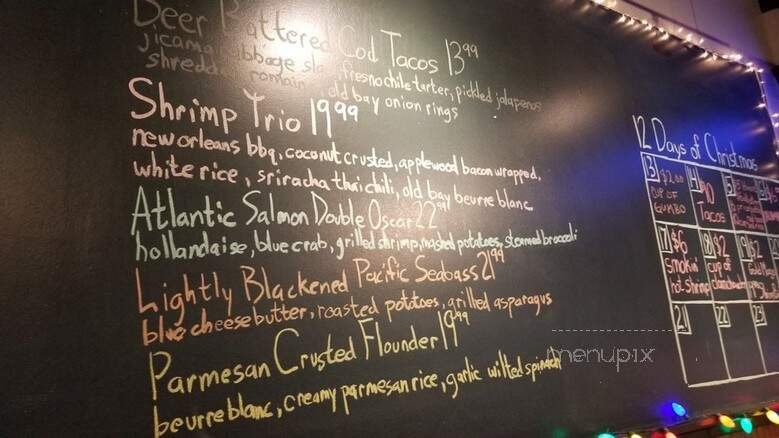 Beer Battered Cod Tacos 13.99
jicama cabbage slaw, fresno chile tarter, pickled jalapenos
shredded romain, old bay onion rings
Shrimp Trio 19.99
new orleans bbq, coconut crusted, applewood bacon wrapped,
white rice, sriracha thai chili, old bay beurre blanc
Atlantic Salmon Double Oscar 22.99
hollandaise, blue crab, grilled shrimp, mashed potatoes, steamed broccoli
Lightly Blackened Pacific Seabass 21.99
blue cheese butter, roasted potatoes, grilled asparagus
Parmesan Crusted Flounder 19.99
beurre blanc, creamy parmesan rice, garlic wilted spinach
12 Days of Christmas
13 $2.00
CUP OF
GUMBO
14
Tacos
17 $6
smokin'
hot shrimp
18 $2
cup of
19 $2
21
22
23
menupix